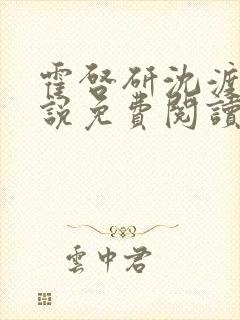 霍啓研沈渡
說免費閱讀
雲中君